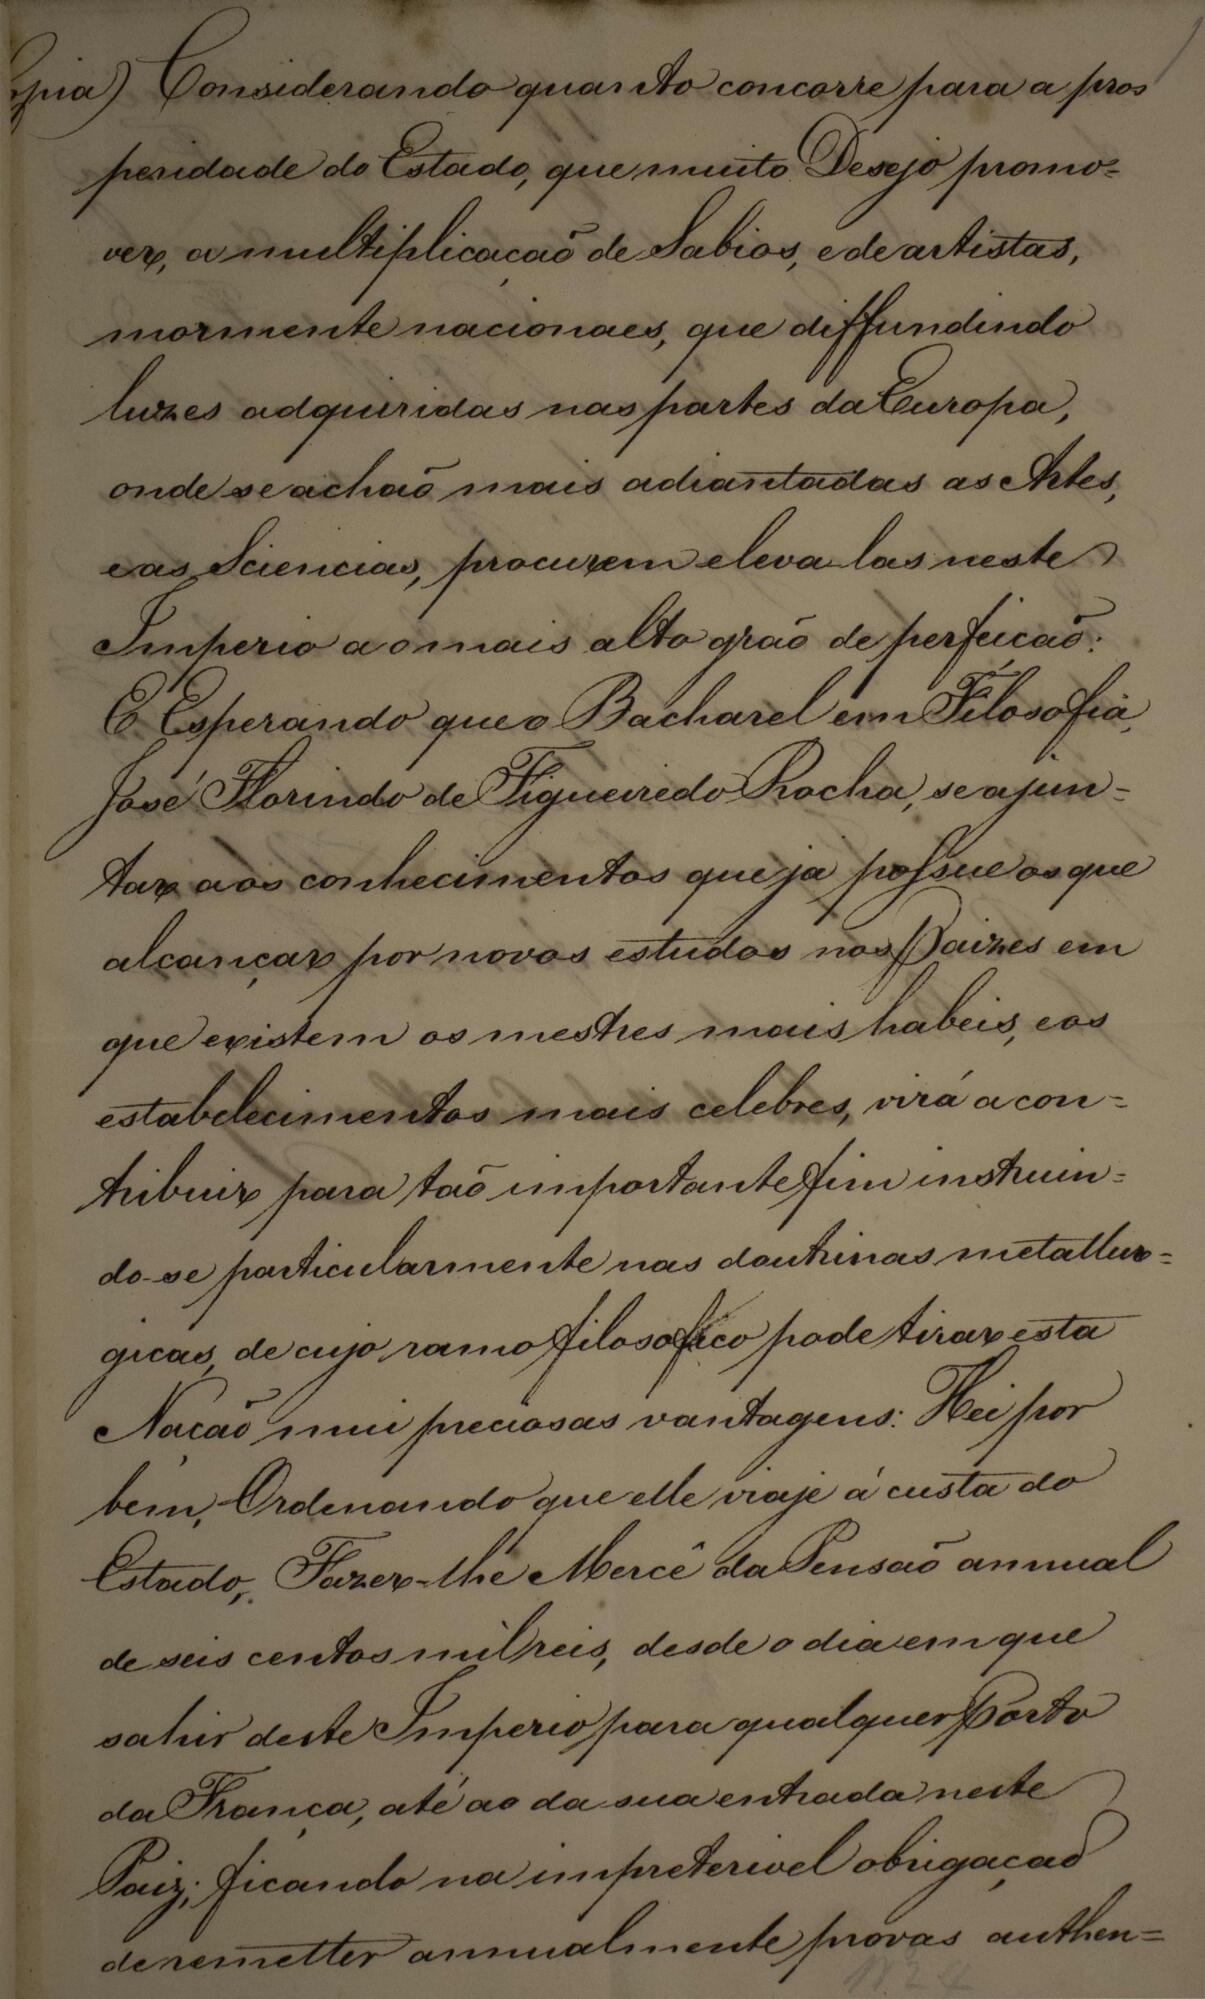 opia) Considerando quanto concorre para a pros
peridade do Estado, que muito Desejo promo=
ver, a multiplicação de Sabios, e de artistas,
mormente nacionaes, que diffundindo
luzes adquiridas nas partes da Europa,
onde se achaõ mais adiantadas as Artes,
e as Sciencias, procurem eleva-las neste
Imperio ao mais alto grão de perfeicaõ:
E Esperando que o Bacharel em Filosofia,
José Florindo de Figueiredo Rocha, se ajun=
tar aos conhecimentos que ja possue os que
alcançar por novos estudos nos Paizes em
que existem os mestres mais habeis, e os
estabelecimentos mais celebres, virá a con=
tribuir para taõ importante fim instruin=
do-se particularmente nas doutrinas metallur=
gicas, de cujo ramo filosofico pode tirar esta
Naçaõ mui preciosas vantagens: Hei por
bem, Ordenando que elle viaje á custa do
Estado, Fazer-lhe Mercê da Pensaõ annual
de seis centos mil reis, desde o dia em que
sahir deste Imperio para qualquer Porto
da França, até ao da sua entrada neste
Paiz; ficando na impreterivel obrigaçaõ
de remetter annualmente provas authen=